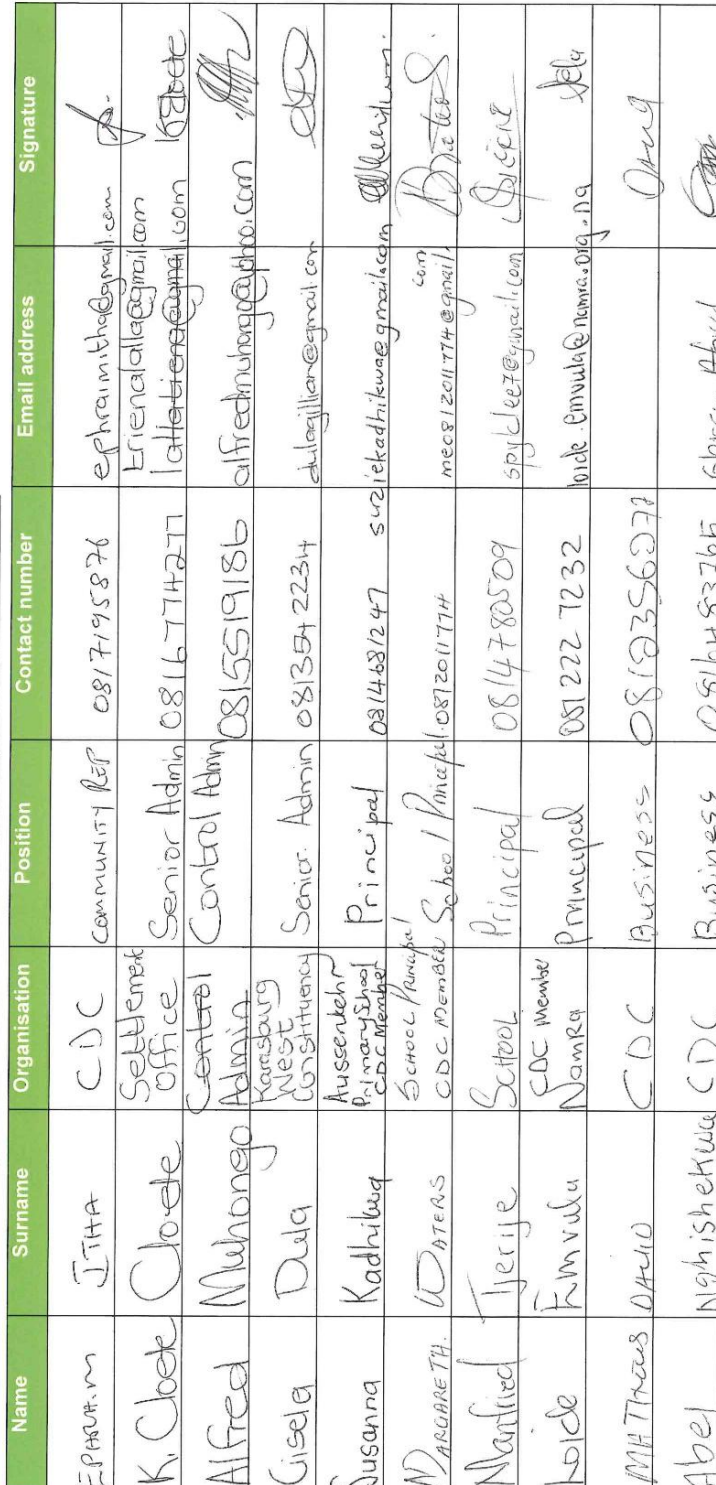 Name Surname Organisation Position Contact number Email address Signature
EPHRAIM ITHA CDC COMMUNITY REP 0817195876 ephraimitha@gmail.com
K. Cloete Cloete Settlement Office Senior Admin 0816774277 trienalalla@gmail.com lallatiena@gmail.com
Alfred Muhongo Control Admin Control Admin 0815519186 alfredmuhongo@yahoo.com
Gisela Dula Karasburg West Constituency Senior Admin 0813542234 dulagillian@gmail.com
Susanna Kadhikwa Aussenkehr Primary School CDC Member Principal 0814681247 suziekadhikwa@gmail.com
MARGARETH. WATERS SCHOOL PRINCIPAL CDC MEMBER School Principal 0812011774 me0812011774@gmail.com
Manfried Tjerije SCHOOL Principal 0814780509 spyklee7@gmail.com
Loide Emvula CDC Member NamRa Principal 081 222 7232 loide.emvula@namra.org.na
MATTHEUS DAVID CDC Business
Abel Nghishekwa CDC Business